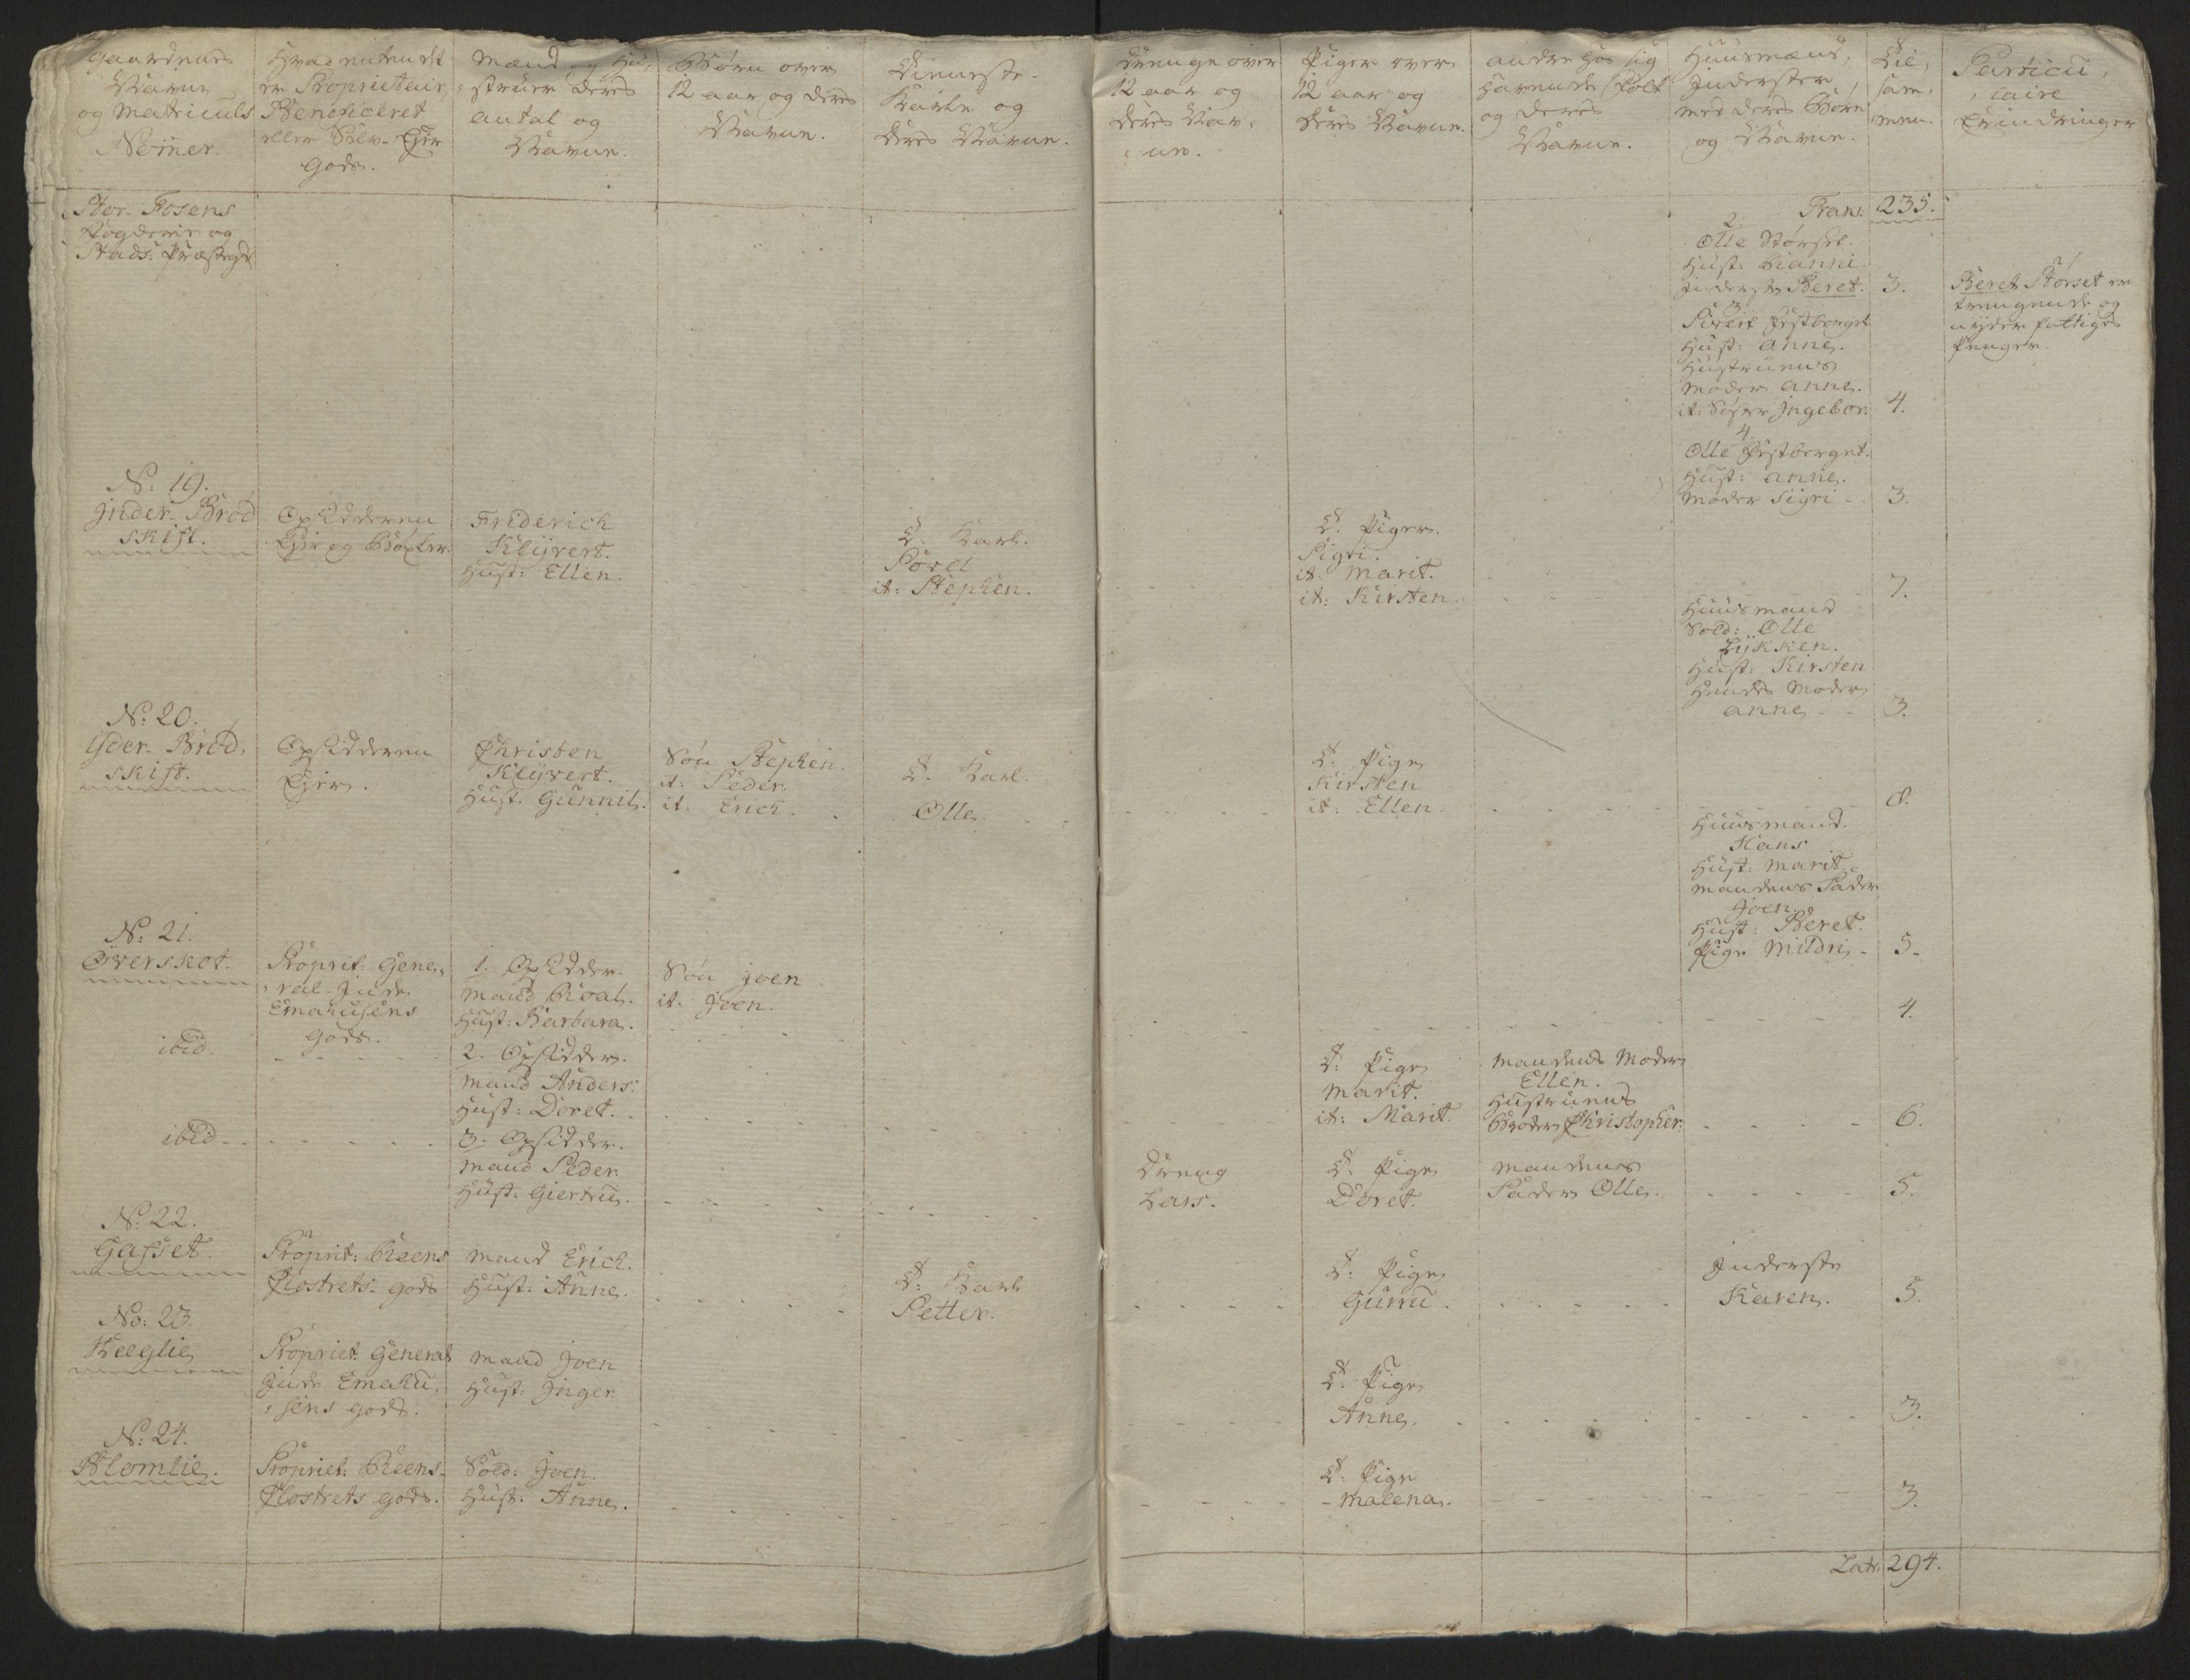 Gaardenes
Navne
og Matriculs
Nomer.
Hvad enten det
er Proprietair,
Beneficeret
eller Selv-Ejer
Gods.
Mænd og Hu,
struer deres
antal og
Navne.
Børn over
12 aar og deres
Navne.
Tieneste-
Karle og
deres Navne.
Drenge over
12 aar og
deres Nav,
ne.
Piger over
12 aar og
deres Navne.
andre hos sig
havende Folk
og deres
Navne.
Huusmænd,
Inderster
med deres Børn
og Navne.
Til,
sam,
men.
Particu,
laire
Erindringer
Stor-Fosens
Fogderie og
Stads: Præstegd
Trans: 235.
2.
Olle Størset.
Hust: Ranni.
Inderste Beret. 3.
Beret Størset er
trengende og
nyder fattiges
Penger.
3.
Sivert Festberget
Hust: Anne.
Hustruens
Moder Anne.
it: Søster Ingebor 4.
4.
Olle Festberget.
Hust: Anne.
Moder Sigri - 3.
No: 19.
Inder-Brød
skift.
Opsidderen
Ejer og Bøxler.
Friderich
Klÿvert.
Hust: Ellen.
T: Karl.
Povel
it: Stephen.
T: Piger.
Sigri.
it: Marit.
it: Kirsten.
7.
Huusmand
Sold: Olle
Lÿkken.
Hust: Kirsten
Hendes Moder
Anne - 3.
No: 20.
Ÿder-Brød,
skift.
Opsidderen
Ejer.
Christen
Klÿvert.
Hust: Gunnil.
Søn Stephen.
it: Peder.
it: Erich.
T: Karl.
Olle.
T: Pige
Kirsten
it: Ellen.
8.
Huusmand.
Hans
Hust: Marit.
Mandens Fader
Joen.
Hust: Beret.
Pige Mildri - 5.
No: 21.
Øverskot.
Proprit: Gene,
ral-Inde
Emahusens
Gods.
1. Opsidder.
Mand Roal.
Hust: Barbara.
Søn Joen
it: Joen.
4.
ibid.
2. Opsidder.
Mand Anders:
Hust: Doret.
T: Pige
Marit.
it: Marit.
Mandens Moder
Ellen.
Hustruens
Broder Christopher.
6.
ibid
3. Opsidder.
Mand Peder.
Hust: Giertru.
Dreng
Lars.
T: Pige
Doret.
Mandens
Fader Olle.
5.
No: 22.
Gasset.
Proprit: Reens
Closterts-Gods
Mand Erich.
Hust: Anne.
T: Karl
Petter.
T: Pige
Gurru.
Inderste
Karen.
5.
No: 23.
Heeglie
Propriet: General
Inde Emahu,
sens Gods.
Mand Joen
Hust: Inger.
T: Pige
Anne.
3.
No: 24.
Blomlie.
Propriet: Reens-
Closterts Gods.
Sold: Joen.
Hust: Anne.
T: Pige
Malena.
3.
Latr. 294.